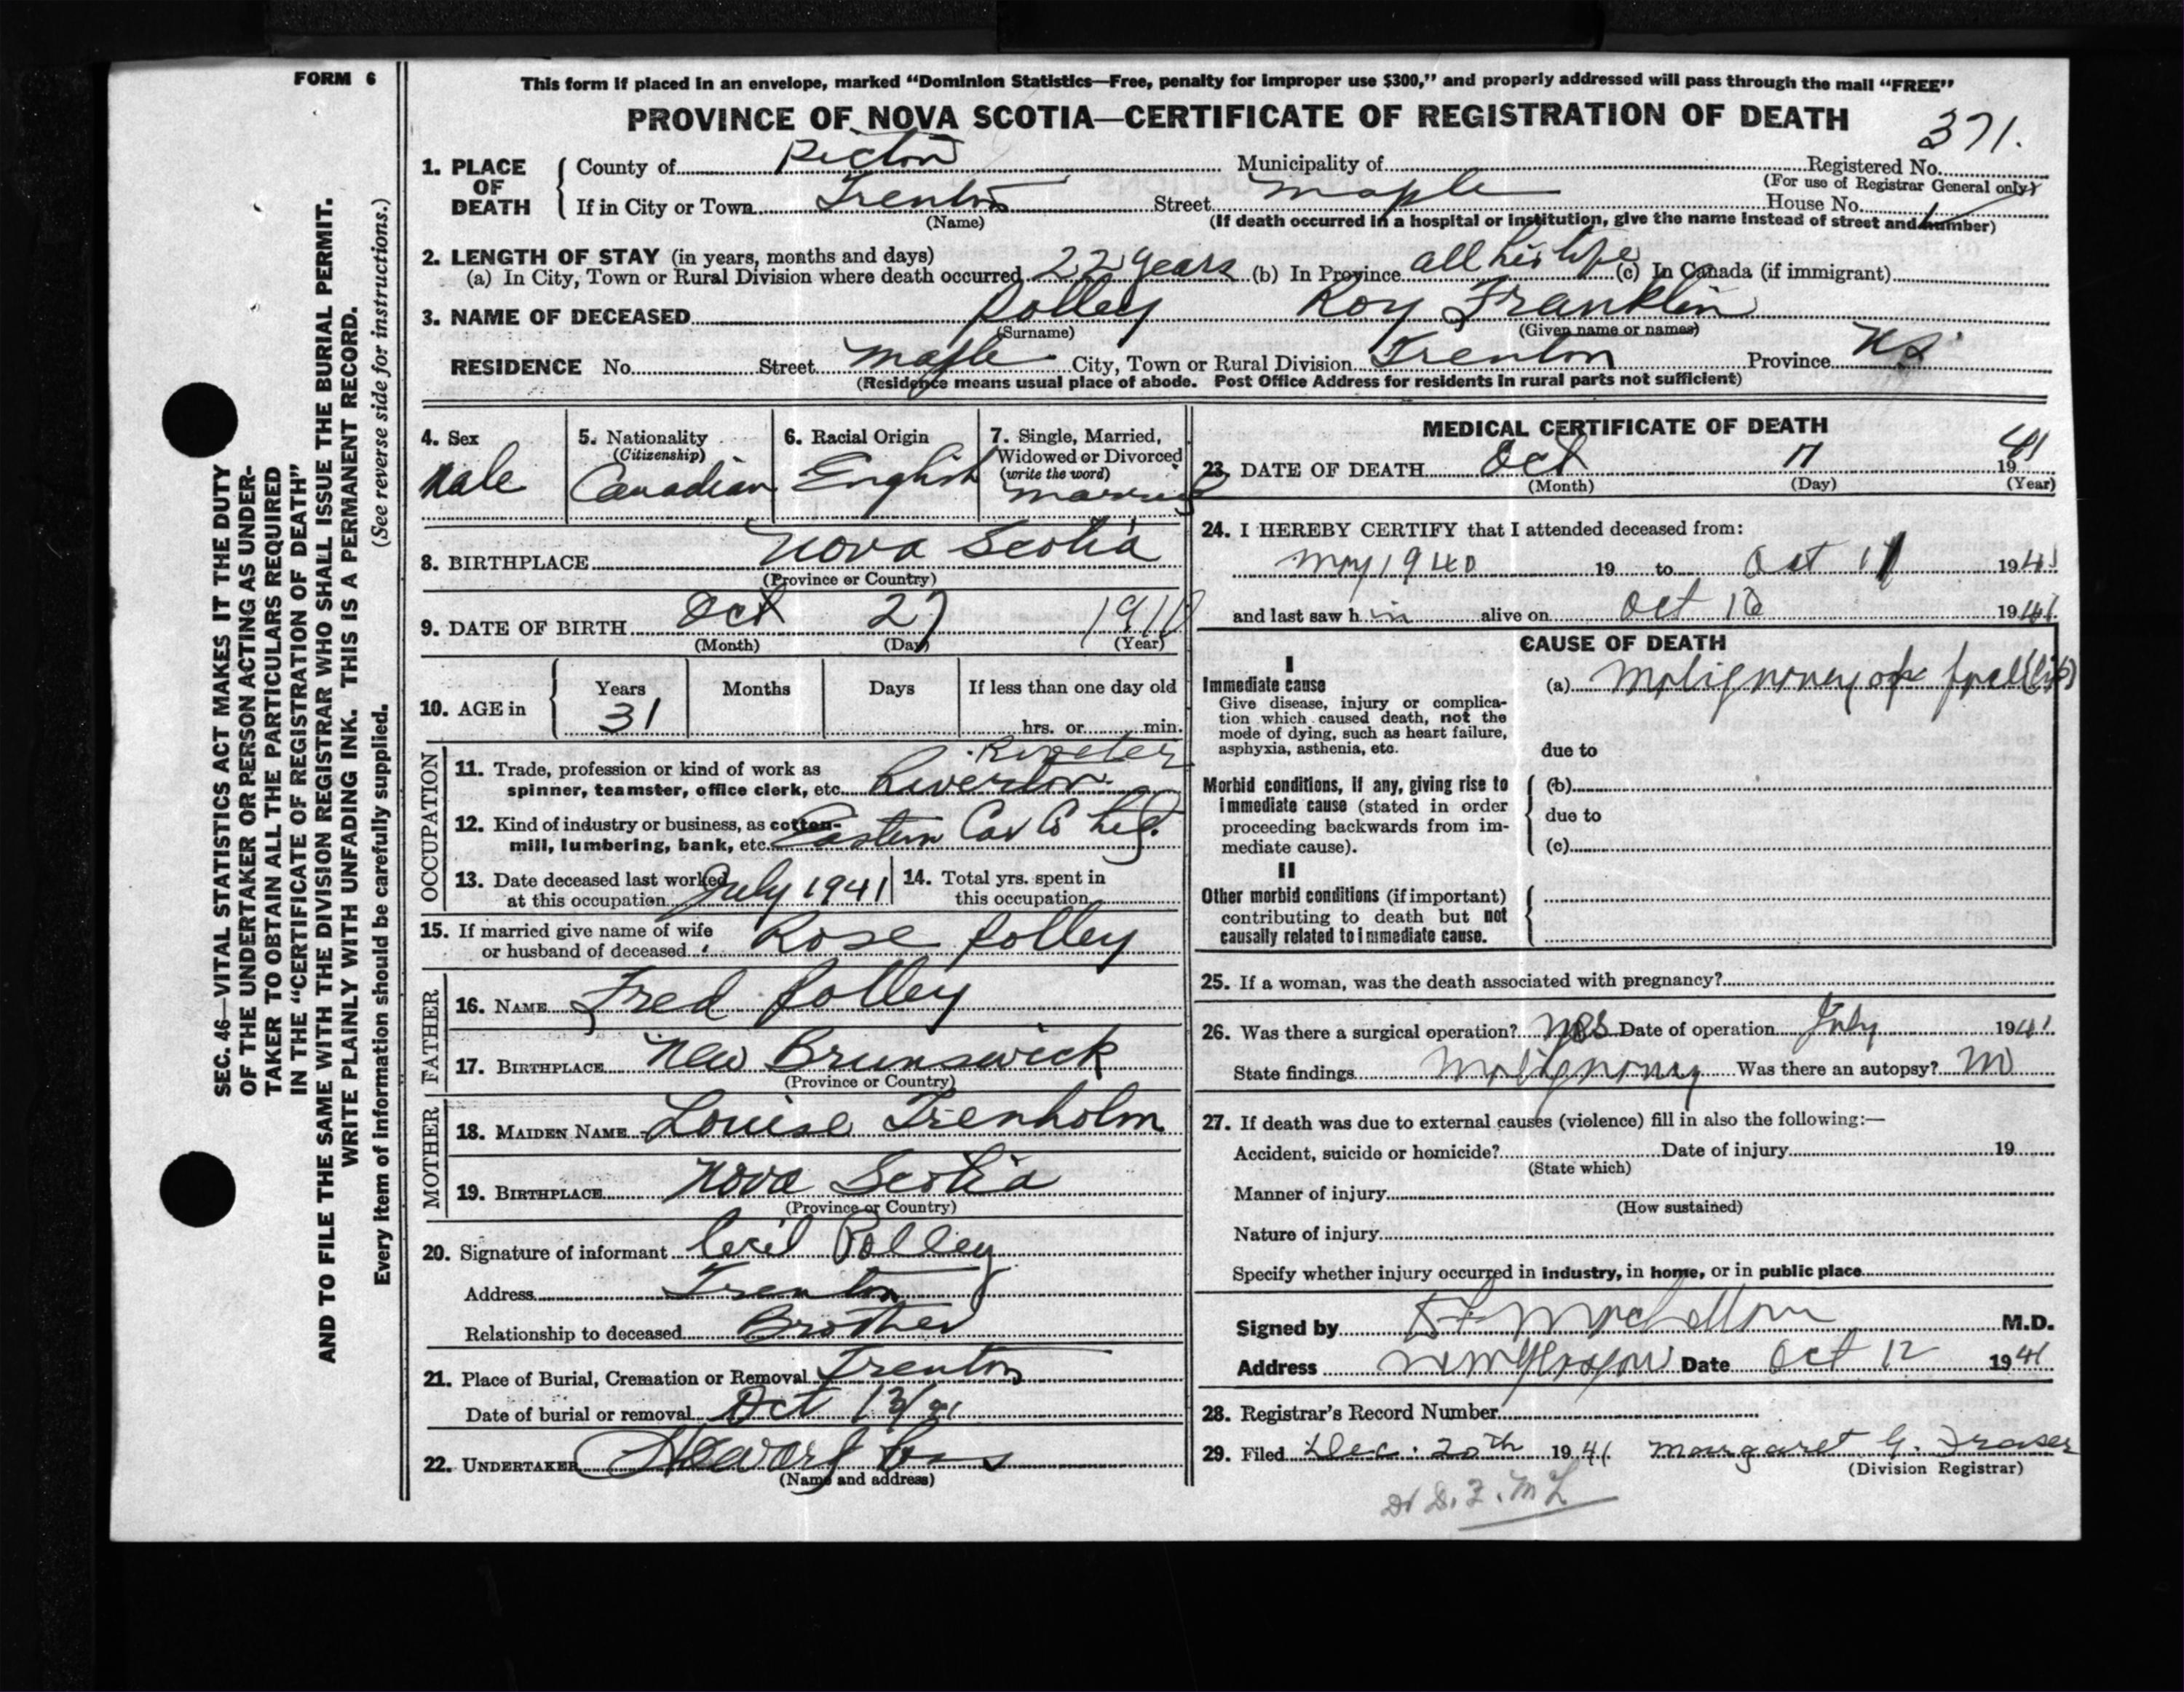 FORM 6
This form if placed in an envelope, marked “Dominion Statistics—Free, penalty for improper use $300,” and properly addressed will pass through the mail “FREE”
PROVINCE OF NOVA SCOTIA—CERTIFICATE OF REGISTRATION OF DEATH
371.
1. PLACE OF DEATH County of Pictou Municipality of Registered No.
(For use of Registrar General only)
If in City or Town Trenton Street Maple House No.
(Name) (If death occurred in a hospital or institution, give the name instead of street and number)
2. LENGTH OF STAY (in years, months and days)
(a) In City, Town or Rural Division where death occurred 22 years (b) In Province all his life (c) In Canada (if immigrant)
3. NAME OF DECEASED Polley Roy Franklin
(Surname) (Given name or names)
RESIDENCE No. Street Maple City, Town or Rural Division Trenton Province N.S.
(Residence means usual place of abode. Post Office Address for residents in rural parts not sufficient)
4. Sex Male
5. Nationality (Citizenship) Canadian
6. Racial Origin English
7. Single, Married, Widowed or Divorced (write the word) Married
8. BIRTHPLACE Nova Scotia
(Province or Country)
9. DATE OF BIRTH Oct 27 1910
(Month) (Day) (Year)
10. AGE in Years Months Days If less than one day old
31 hrs. or min.
OCCUPATION
11. Trade, profession or kind of work as Riveter
spinner, teamster, office clerk, etc.
12. Kind of industry or business, as cotton-
mill, lumbering, bank, etc. Eastern Car Co Ltd.
13. Date deceased last worked at this occupation July 1941
14. Total yrs. spent in this occupation
15. If married give name of wife or husband of deceased Rose Polley
FATHER
16. NAME Fred Polley
17. BIRTHPLACE New Brunswick
(Province or Country)
MOTHER
18. MAIDEN NAME Louise Trenholm
19. BIRTHPLACE Nova Scotia
(Province or Country)
20. Signature of informant Cecil Polley
Address Trenton
Relationship to deceased Brother
21. Place of Burial, Cremation or Removal Trenton
Date of burial or removal Oct 13/41
22. UNDERTAKER
(Name and address)
MEDICAL CERTIFICATE OF DEATH
23. DATE OF DEATH Oct 11 1941
(Month) (Day) (Year)
24. I HEREBY CERTIFY that I attended deceased from:
May 1940 19 to Oct 11 1941
and last saw him alive on Oct 10 1941
CAUSE OF DEATH
I
Immediate cause
Give disease, injury or complica-
tion which caused death, not the
mode of dying, such as heart failure,
asphyxia, asthenia, etc.
(a) Malignancy of
due to
Morbid conditions, if any, giving rise to
immediate cause (stated in order
proceeding backwards from im-
mediate cause).
(b)
due to
(c)
II
Other morbid conditions (if important)
contributing to death but not
causally related to immediate cause.
25. If a woman, was the death associated with pregnancy?
26. Was there a surgical operation? Yes Date of operation July 1941
State findings Malignancy Was there an autopsy? No
27. If death was due to external causes (violence) fill in also the following:—
Accident, suicide or homicide? Date of injury 19
(State which)
Manner of injury
(How sustained)
Nature of injury
Specify whether injury occurred in industry, in home, or in public place
Signed by M.D.
Address New Glasgow Date Oct 12 1941
28. Registrar's Record Number
29. Filed Dec. 20th 1941 Margaret G. Fraser
(Division Registrar)
SEC. 46—VITAL STATISTICS ACT MAKES IT THE DUTY
OF THE UNDERTAKER OR PERSON ACTING AS UNDER-
TAKER TO OBTAIN ALL THE PARTICULARS REQUIRED
IN THE “CERTIFICATE OF REGISTRATION OF DEATH”
AND TO FILE THE SAME WITH THE DIVISION REGISTRAR WHO SHALL ISSUE THE BURIAL PERMIT.
WRITE PLAINLY WITH UNFADING INK. THIS IS A PERMANENT RECORD.
Every item of information should be carefully supplied. (See reverse side for instructions.)